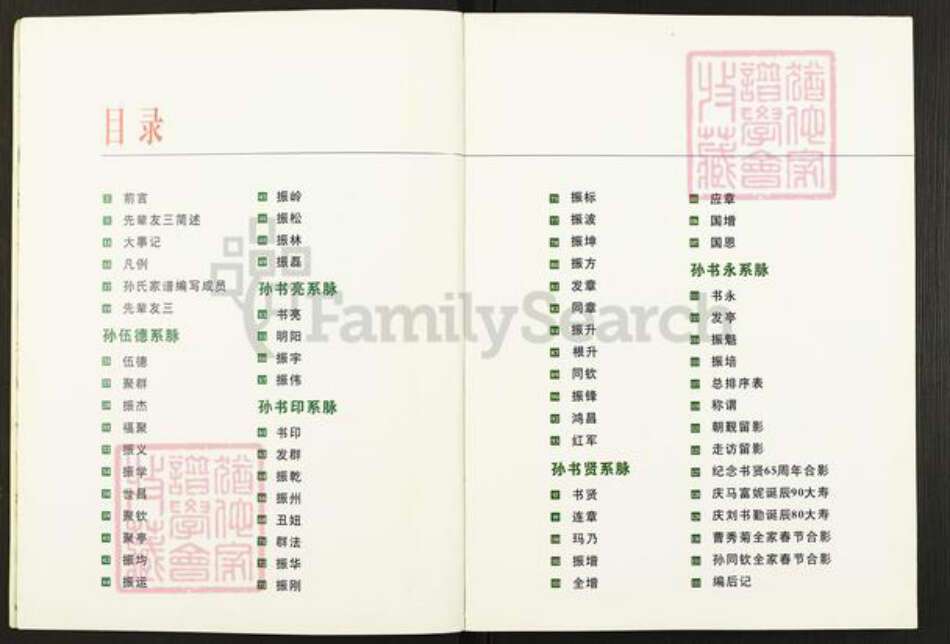 目录
前言
先辈友三简述
大事记
凡例
孙氏家谱编写成员
先辈友三
孙伍德系脉
伍德
聚群
振杰
福聚
振义
振学
世昌
聚钦
聚亭
振均
振运
振岭
振松
振林
振磊
孙书亮系脉
书亮
明阳
振宇
振伟
孙书印系脉
书印
发群
振乾
振州
丑妞
群法
振华
振刚
振标
振波
振坤
振方
发章
同章
振升
根升
同钦
振锋
鸿昌
红军
孙书贤系脉
书贤
连章
玛乃
振增
全增
应章
国增
国恩
孙书永系脉
书永
发亭
振魁
振培
总排序表
称谓
朝觐留影
走访留影
纪念书贤65周年合影
庆马富妮诞辰90大寿
庆刘书勤诞辰80大寿
曹秀菊全家春节合影
孙同钦全家春节合影
编后记
FamilySearch
猶他家
譜學會
收藏
猶他家
譜學會
收藏